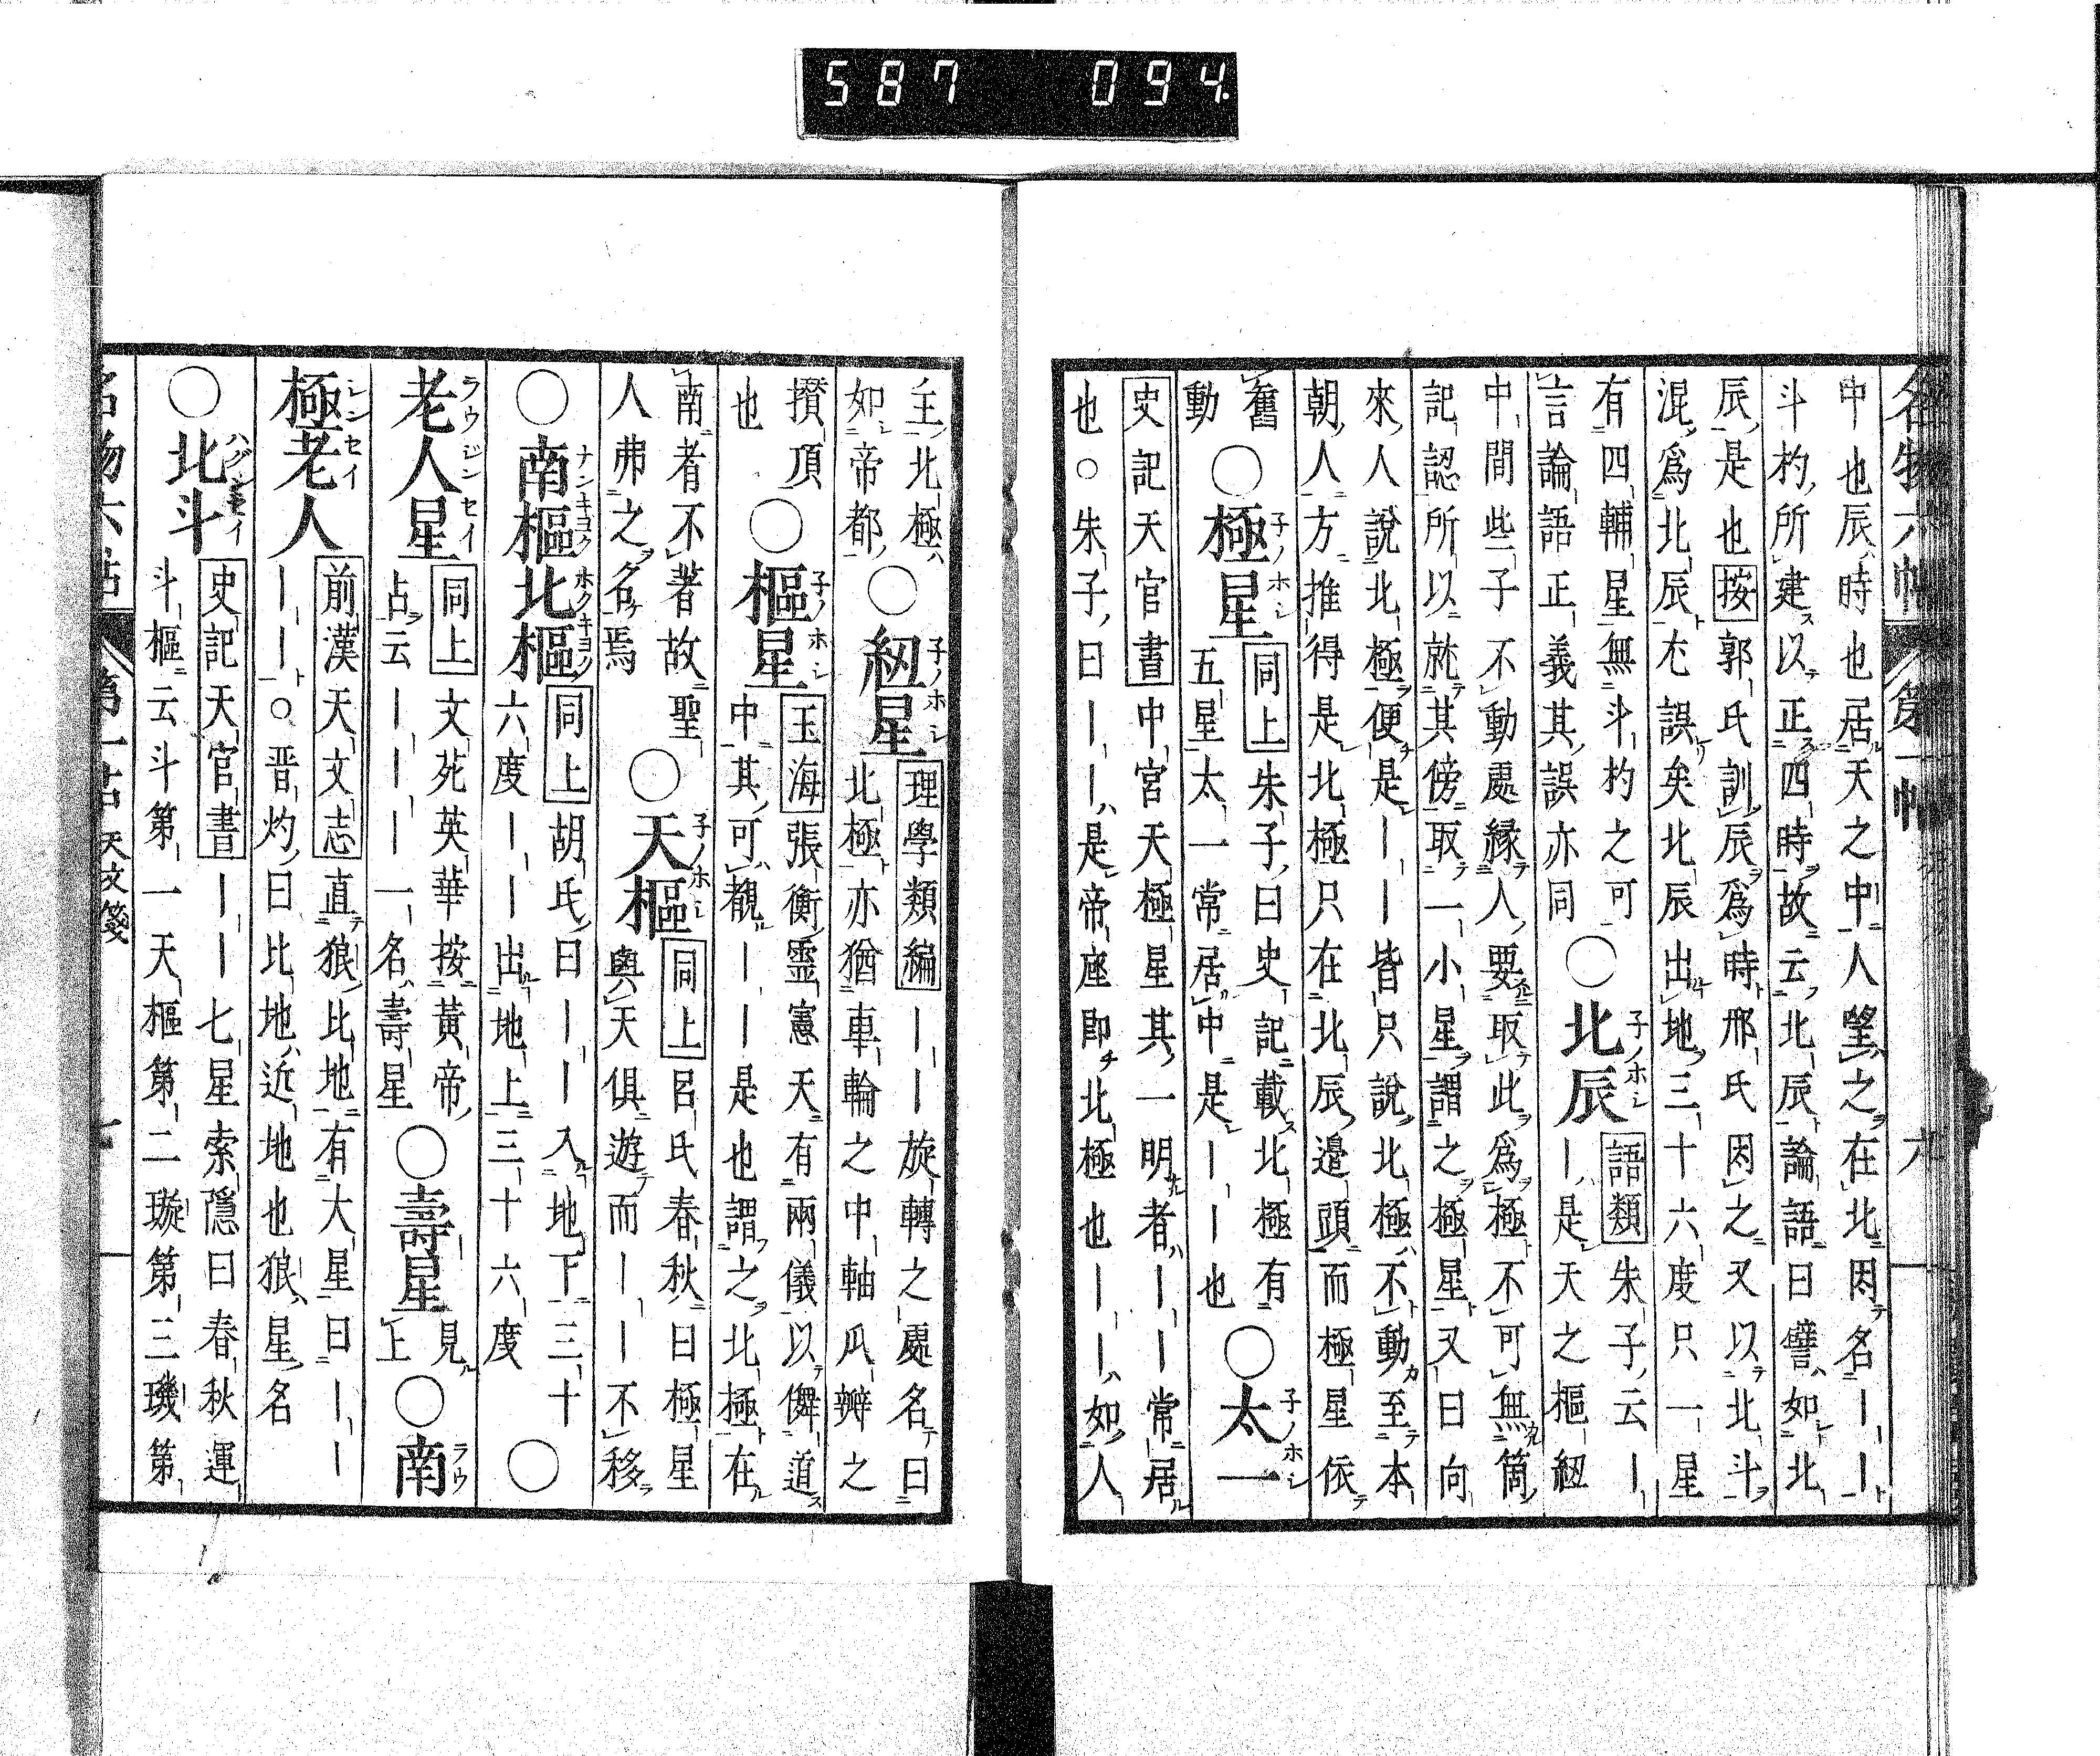 587 094
名物六帖 第一帖 六
中也辰時也居天之中人望之在北因名――
斗杓所建以正四時故云北辰論語曰譬如北
辰是也按郭氏訓辰爲時邢氏因之又以北斗
混爲北辰尤誤矣北辰出地三十六度只一星
有四輔星無斗杓之可
言論語正義其誤亦同
○北辰
子ノホシ
語類朱子云―
―是天之樞紐
中間些子不動處緣人要取此爲極不可無箇
記認所以就其傍取一小星謂之極星又曰向
來人說北極便是――皆只說北極不動至本
朝人方推得是北極只在北辰邉頭而極星依
舊
動
○極星
子ノホシ
同上朱子曰史記載北極有
五星太一常居中是――也
○太一
子ノホシ
史記天官書中宮天極星其一明者――常居
也○朱子曰――是帝座即北極也――如人
主北極
如帝都
○紐星
子ノホシ
理學類編――旋轉之處名曰
北極亦猶車輪之中軸瓜瓣之
攅頂
也
○樞星
子ノホシ
玉海張衡靈憲天有兩儀以儛道
中其可覩――是也謂之北極在
南者不著故聖
人弗之名焉
○天樞
子ノホシ
同上呂氏春秋曰極星
與天俱遊而――不移
○南樞北樞
ナンキヨク ホクキヨク
同上胡氏曰――入地下三十
六度――出地上三十六度
○
老人星
ラウジンセイ
同上文苑英華按黃帝
占云―――一名壽星
○壽星
見
上
○南
ラウ
極老人
ンセイ
前漢天文志直狼比地有大星曰――
――○晋灼曰比地近地也狼星名
○北斗
ハグンセイ
史記天官書――七星索隱曰春秋運
斗樞云斗第一天樞第二璇第三璣第
名物六帖 第一帖 天文箋 七